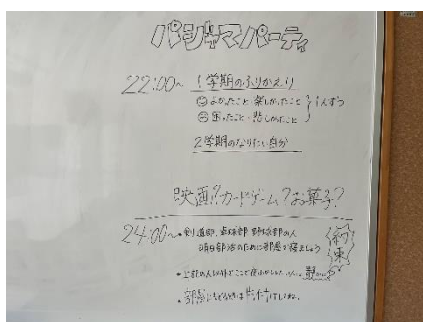 パジャマパーティ
22:00~ 1学期のふりかえり
よかったこと・楽しかったこと
困ったこと・悲しかったこと
2学期のなりたい自分
映画?カードゲーム?お菓子?
24:00~ ・剣道部、卓球部、野球部の人
明日部活のために部屋で寝ましょう
約束
・上記の人以外でここで夜ふかししたい人は、
・部屋にもどるときは片付けしてね。